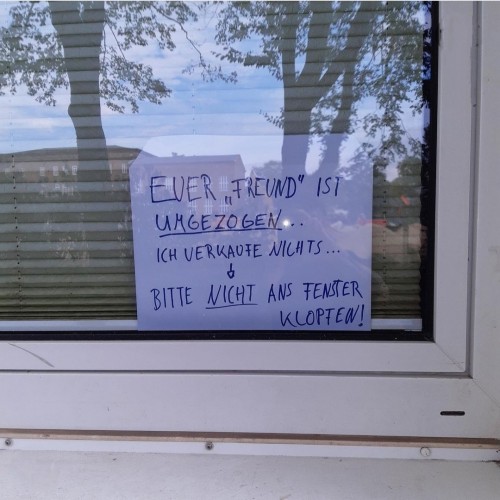 EUER „FREUND" IST
UMGEZOGEN...
ICH VERKAUFE NICHTS...
↓
BITTE NICHT ANS FENSTER
KLOPFEN!